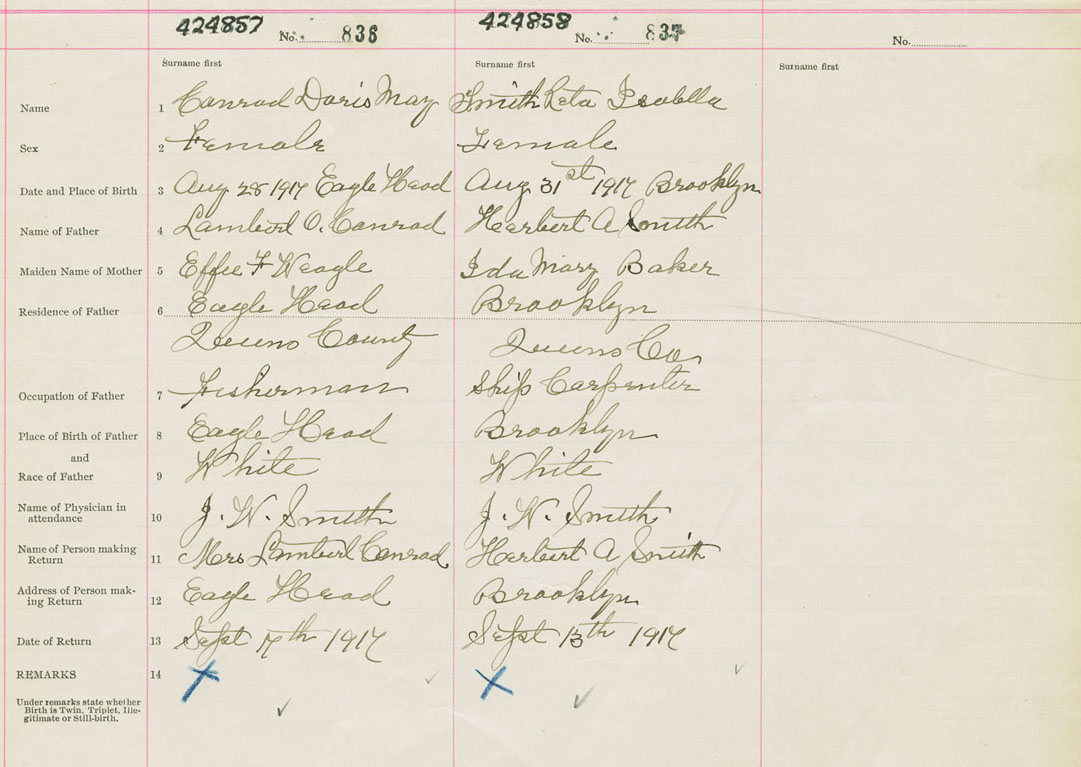 424857 No. 836 424858 No. 837 No.
Surname first Surname first Surname first
Name 1 Conrad Doris May Smith Leta Isabella
Sex 2 Female Female
Date and Place of Birth 3 Aug 28 1917 Eagle Head Aug 31st 1917 Brooklyn
Name of Father 4 Lambert O. Conrad Herbert A Smith
Maiden Name of Mother 5 Effie F Weagle Ida Mary Baker
Residence of Father 6 Eagle Head Brooklyn
Queens County Queens Co.
Occupation of Father 7 Fisherman Ship Carpenter
Place of Birth of Father 8 Eagle Head Brooklyn
and
Race of Father 9 White White
Name of Physician in
attendance 10 J. W. Smith J. W. Smith
Name of Person making
Return 11 Mrs Lambert Conrad Herbert A Smith
Address of Person mak-
ing Return 12 Eagle Head Brooklyn
Date of Return 13 Sept 7th 1917 Sept 13th 1917
REMARKS 14
Under remarks state whether
Birth is Twin, Triplet, Ille-
gitimate or Still-birth.